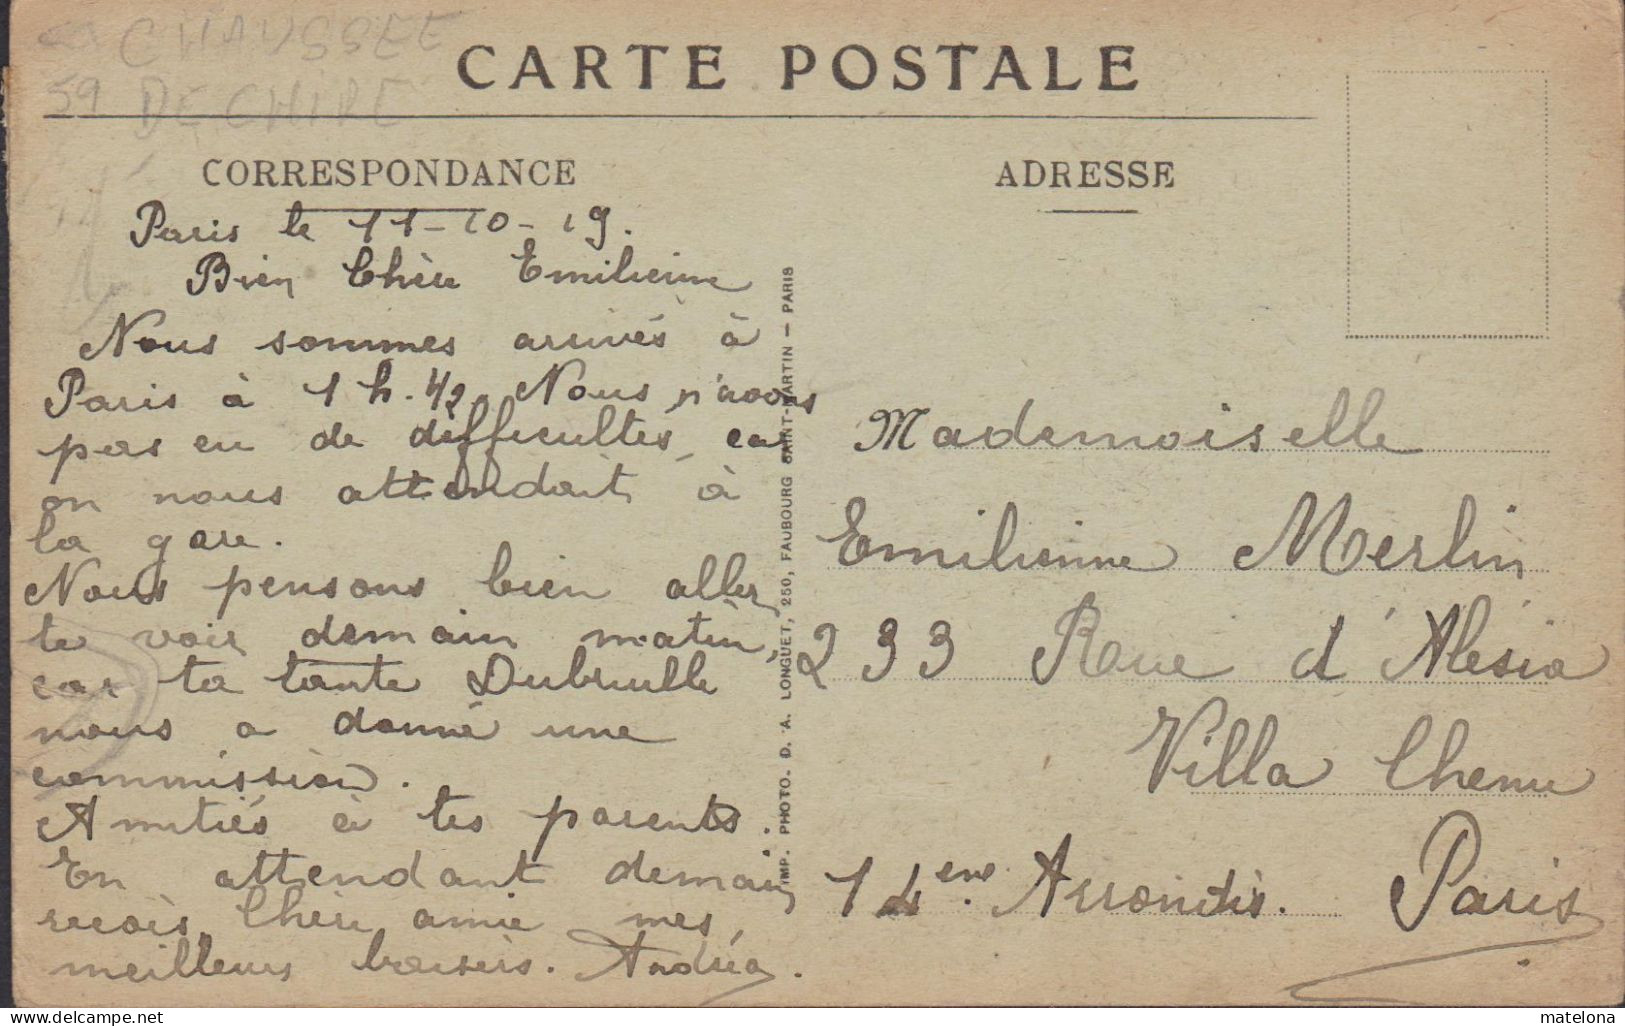 CHAUSSEE
59 DECHIRE
CARTE POSTALE
CORRESPONDANCE
Paris le 11-10-19.
Bien Chère Emilienne
Nous sommes arrivés à
Paris à 1 h. 1/2. Nous n'avons
pas eu de difficultés, car
on nous attendait à
la gare.
Nous pensons bien aller
te voir demain matin,
car ta tante Dubrulle
nous a donné une
commission.
Amitiés à tes parents.
En attendant demain
reçois, Chère amie mes
meilleurs baisers. Andréa.
IMP. PHOTO. D. A. LONGUET, 250, FAUBOURG SAINT-MARTIN — PARIS
ADRESSE
Mademoiselle
Emilienne Merlin
233 Roue d'Alesia
Villa Chenu
14eme Arrondis. Paris
matelona